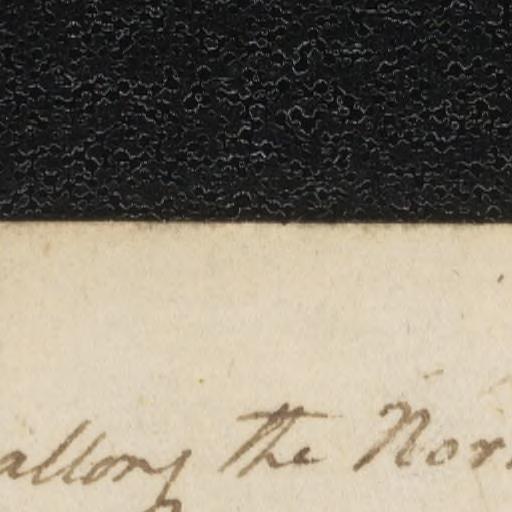 allong the Nor